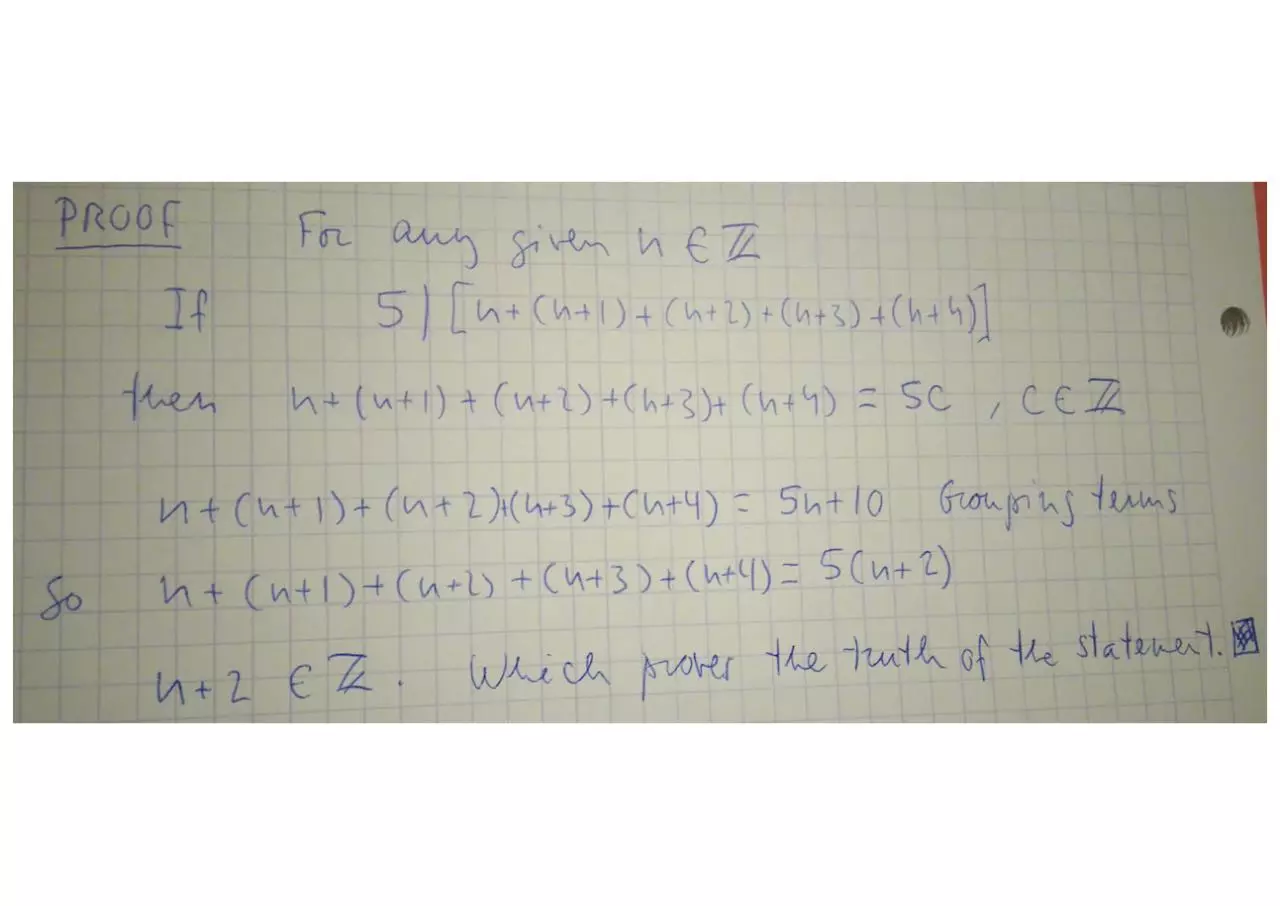 PROOF For any given n ∈ ℤ
If 5 | [n+(n+1)+(n+2)+(n+3)+(n+4)]
then n+(n+1)+(n+2)+(n+3)+(n+4) = 5C , C ∈ ℤ
n+(n+1)+(n+2)+(n+3)+(n+4) = 5n+10 Grouping terms
So n+(n+1)+(n+2)+(n+3)+(n+4) = 5(n+2)
n+2 ∈ ℤ. Which proves the truth of the statement.